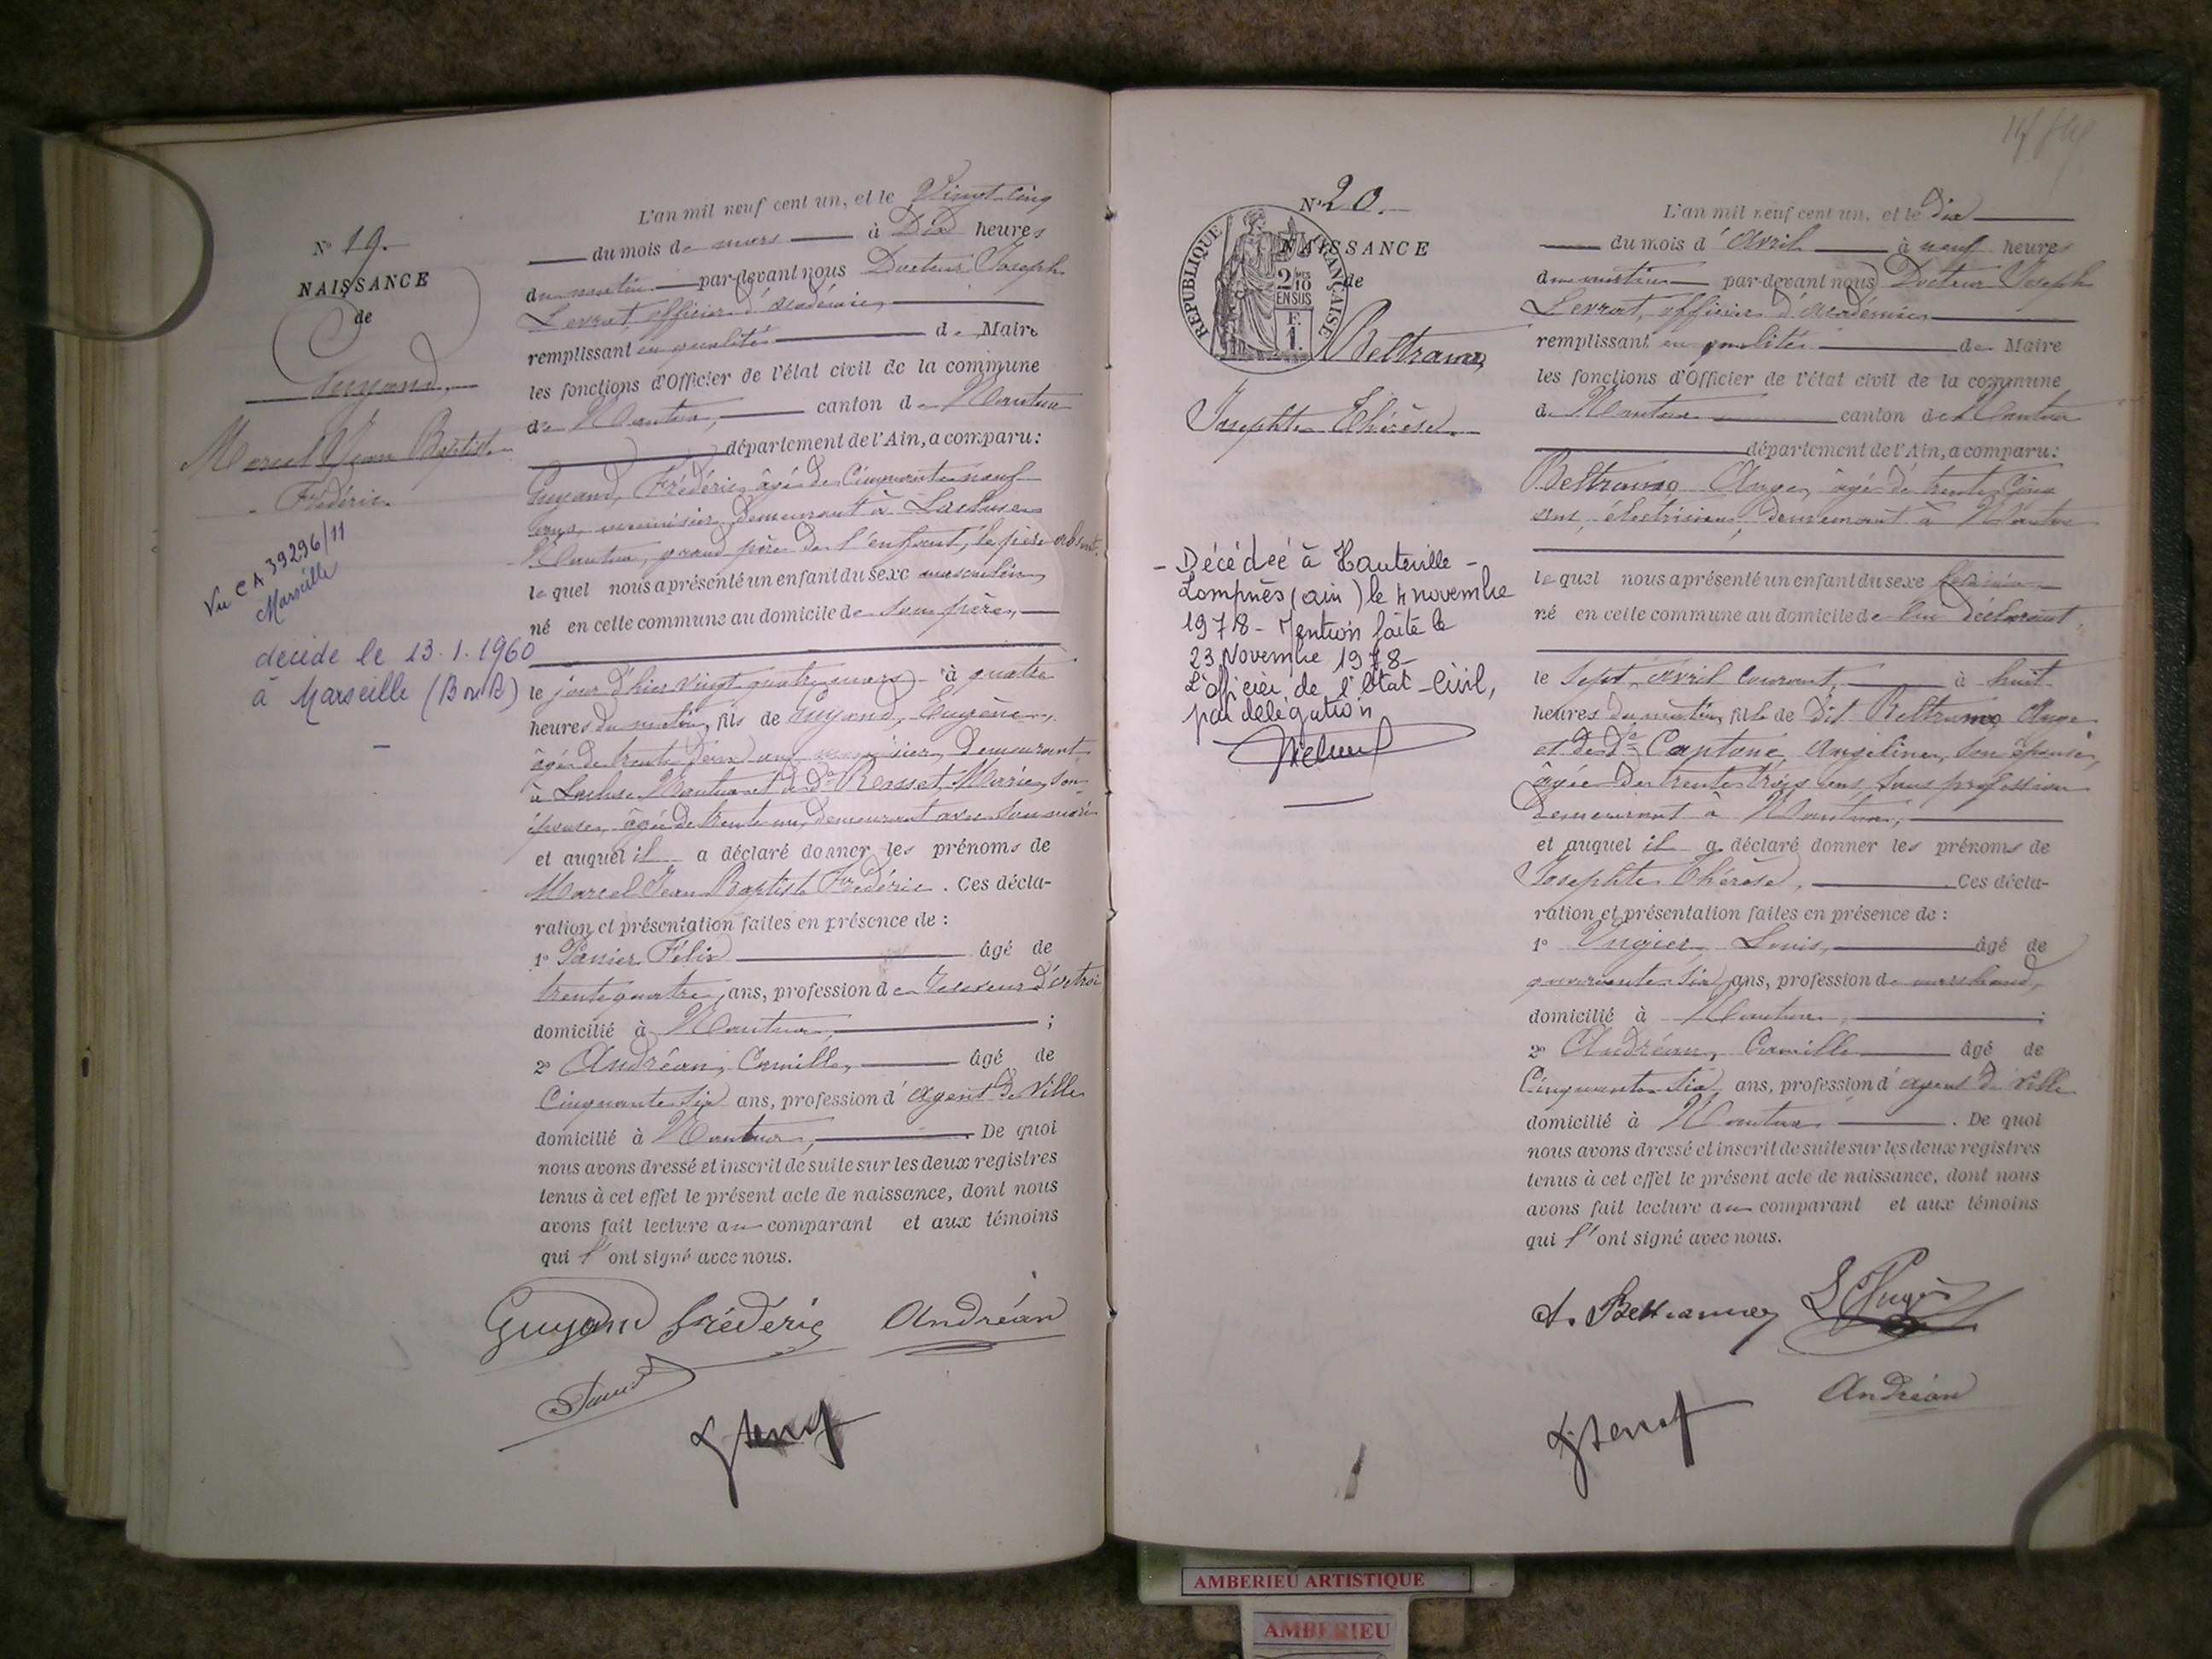 N° 19.
NAISSANCE
de
Guyand,
Marcel Jean Baptiste
Frédéric
Vu CA 39296/11
Marseille
décidé le 13.1.1960
à Marseille (B du R)
L'an mil neuf cent un, et le Vingt-cinq
du mois de mars à Dix heures
du matin par-devant nous Docteur Joseph
Levrat officier d'académie,
remplissant en qualité de Maire
les fonctions d'Officier de l'état civil de la commune
de Nantua, canton de Nantua
département de l'Ain, a comparu:
Guyand, Frédéric âgé de Cinquante neuf
ans, menuisier demeurant à Lacluse
Nantua, grand père de l'enfant, le père absent.
lequel nous a présenté un enfant du sexe masculin,
né en cette commune au domicile de son père,
le jour d'hier vingt quatre mars à quatre
heures du matin, fils de Guyand, Eugène,
âgé de trente deux ans menuisier, demeurant
à Lacluse Nantua et de De Rosset Marie, son
épouse, âgée de trente un, demeurant avec son mari
et auquel il a déclaré donner les prénoms de
Marcel Jean Baptiste Frédéric. Ces décla-
ration et présentation faites en présence de:
1° Panier Félix âgé de
trente quatre ans, profession de receveur d'octroi
domicilié à Nantua, ;
2° Andréan, Camille, âgé de
Cinquante six ans, profession d'agent de Ville
domicilié à Nantua, De quoi
nous avons dressé et inscrit de suite sur les deux registres
tenus à cet effet le présent acte de naissance, dont nous
avons fait lecture au comparant et aux témoins
qui l'ont signé avec nous.
Guyand frédéric Andréan
N° 20.
NAISSANCE
de
REPUBLIQUE FRANÇAISE
2/10 EN SUS
F.
1.
Beltramo
Josephte Thérèse
- Décédée à Hauteville -
Lompnès (ain) le 4 novembre
1978 - Mention faite le
23 Novembre 1978 -
L'officier de l'Etat-Civil,
par délégation
L'an mil neuf cent un, et le dix
du mois d'Avril à neuf heures
du matin par-devant nous Docteur Joseph
Levrat, officier d'Académie
remplissant en qualité de Maire
les fonctions d'Officier de l'état civil de la commune
de Nantua canton de Nantua
département de l'Ain, a comparu:
Beltramo Ange, âgé de trente cinq
ans, électricien, demeurant à Nantua
lequel nous a présenté un enfant du sexe féminin
né en cette commune au domicile de lui déclarant,
le sept avril courant, à huit
heures du matin, fille de dit Beltramo Ange
et de De Captane, Angéline, son épouse,
âgée de trente trois ans, sans profession
demeurant à Nantua,
et auquel il a déclaré donner les prénoms de
Josephte Thérèse, Ces décla-
ration et présentation faites en présence de:
1° Louis, âgé de
quarante six ans, profession de marchand,
domicilié à Nantua,
2° Andréan, Camille âgé de
Cinquante six ans, profession d'agent de Ville
domicilié à Nantua. De quoi
nous avons dressé et inscrit de suite sur les deux registres
tenus à cet effet le présent acte de naissance, dont nous
avons fait lecture au comparant et aux témoins
qui l'ont signé avec nous.
A. Beltramo
Andréan
AMBERIEU ARTISTIQUE
AMBERIEU